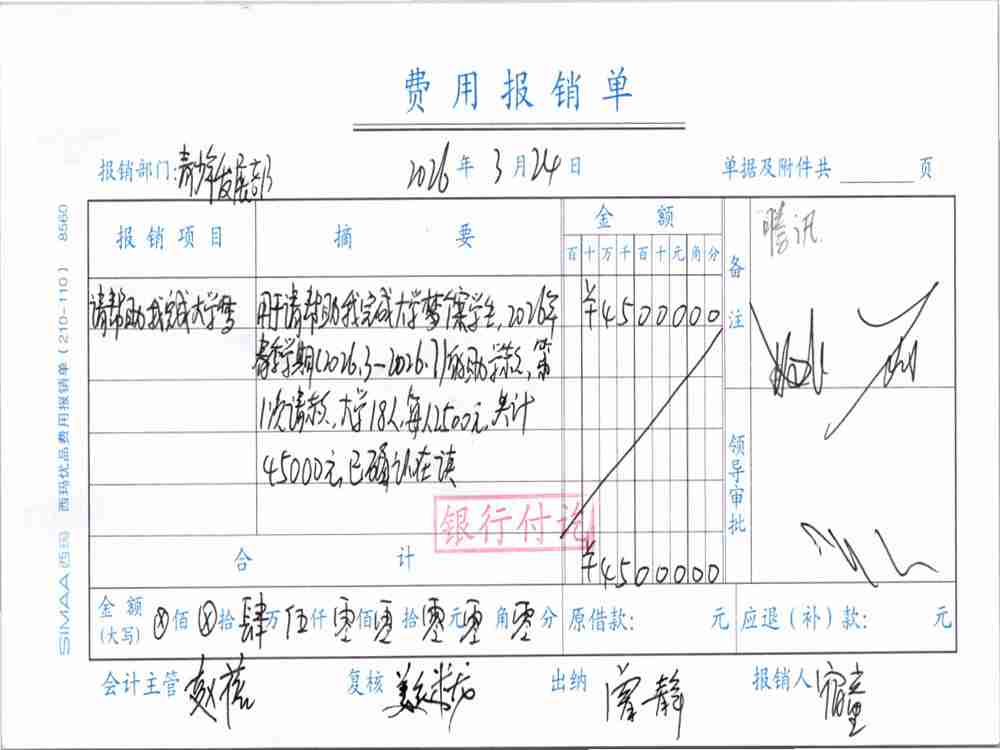 费用报销单
报销部门:青少年发展部 2026年3月24日 单据及附件共 页
报销项目 摘要 金额 备注 腾讯
百十万千百十元角分
请帮助我完成大学梦 用于请帮助我完成大学梦个案学生,2026年 ¥4500000
春季学期(2026.3-2026.7)的助学款,第
1次请款,大学18人,每人2500元,共计
45000元,已确认在读
领导审批
银行付讫
合计 ¥4500000
金额(大写) ⊗佰⊗拾肆万伍仟零佰零拾零元零角零分 原借款: 元 应退(补)款: 元
会计主管 赵蓓 复核 出纳 曾静 报销人
SIMAA 西玛 西玛优品费用报销单(210-110) 8560